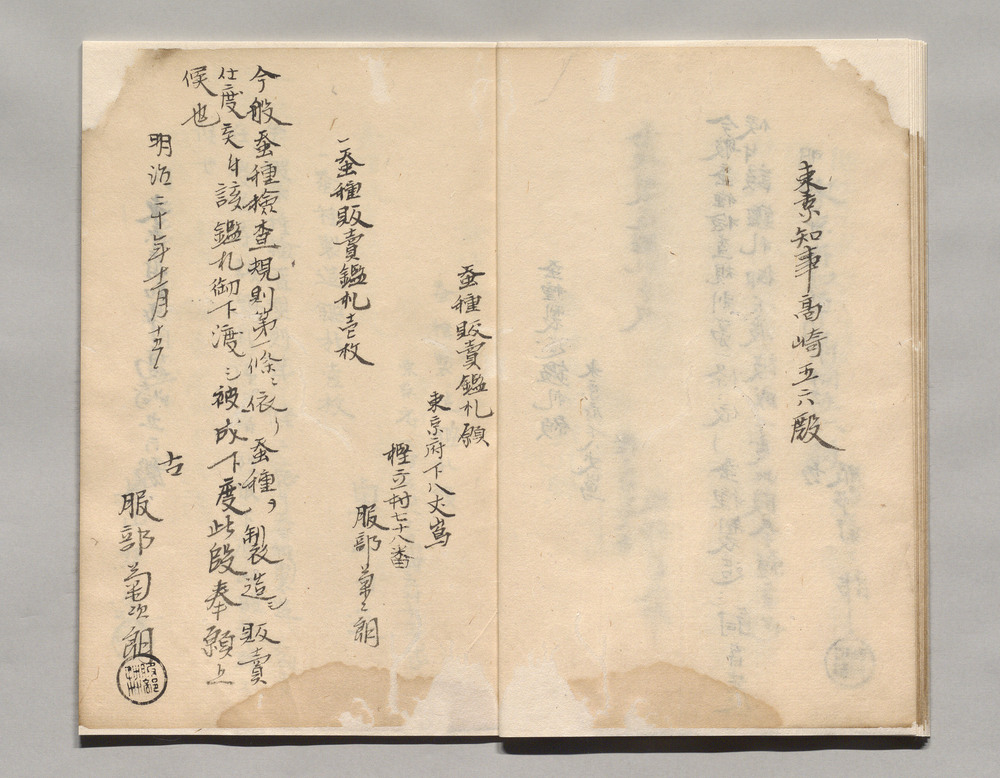 東京知事高崎五六殿
蚕種販賣鑑札願
東京府下八丈嶌
樫立村七十八番
服部菊次朗
一蚕種販賣鑑札壱枚
今般蚕種檢查規則第一條ニ依リ蚕種ヲ製造シ販賣
仕度矣付該鑑札御下渡シ被成下度此段奉願上
候也
明治二十年十一月十五
右
服部菊次朗
服部